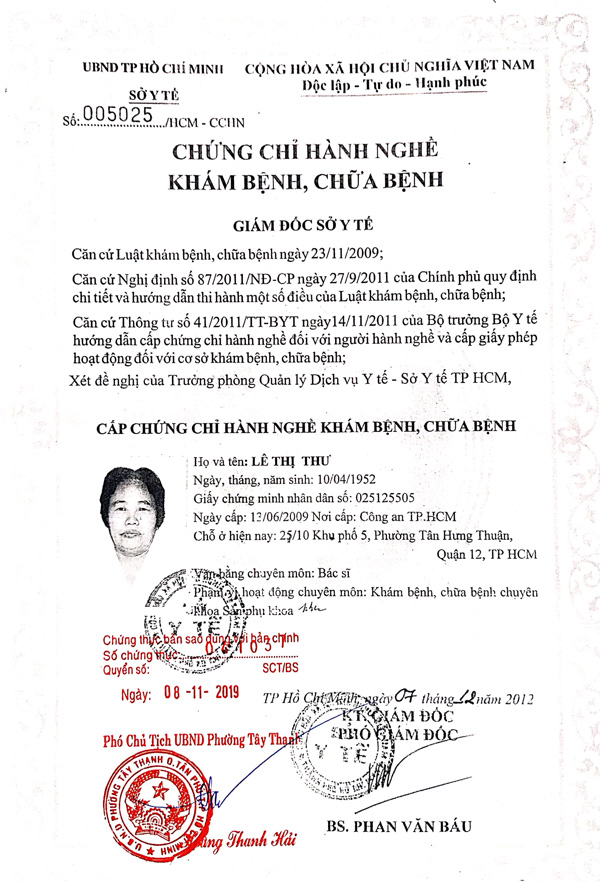 UBND TP HỒ CHÍ MINH
SỞ Y TẾ
Số: 005025 /HCM - CCHN
CỘNG HÒA XÃ HỘI CHỦ NGHĨA VIỆT NAM
Độc lập - Tự do - Hạnh phúc
CHỨNG CHỈ HÀNH NGHỀ
KHÁM BỆNH, CHỮA BỆNH
GIÁM ĐỐC SỞ Y TẾ
Căn cứ Luật khám bệnh, chữa bệnh ngày 23/11/2009;
Căn cứ Nghị định số 87/2011/NĐ-CP ngày 27/9/2011 của Chính phủ quy định
chi tiết và hướng dẫn thi hành một số điều của Luật khám bệnh, chữa bệnh;
Căn cứ Thông tư số 41/2011/TT-BYT ngày14/11/2011 của Bộ trưởng Bộ Y tế
hướng dẫn cấp chứng chỉ hành nghề đối với người hành nghề và cấp giấy phép
hoạt động đối với cơ sở khám bệnh, chữa bệnh;
Xét đề nghị của Trưởng phòng Quản lý Dịch vụ Y tế - Sở Y tế TP HCM,
CẤP CHỨNG CHỈ HÀNH NGHỀ KHÁM BỆNH, CHỮA BỆNH
Họ và tên: LÊ THỊ THƯ
Ngày, tháng, năm sinh: 10/04/1952
Giấy chứng minh nhân dân số: 025125505
Ngày cấp: 13/06/2009 Nơi cấp: Công an TP.HCM
Chỗ ở hiện nay: 25/10 Khu phố 5, Phường Tân Hưng Thuận,
Quận 12, TP HCM
Văn bằng chuyên môn: Bác sĩ
Phạm vi hoạt động chuyên môn: Khám bệnh, chữa bệnh chuyên
khoa Sản phụ khoa
Y TẾ
Chứng thực bản sao đúng với bản chính
Số chứng thực:
Quyển số: SCT/BS
Ngày: 08-11-2019
TP Hồ Chí Minh, ngày 07 tháng 12 năm 2012
KT. GIÁM ĐỐC
PHÓ GIÁM ĐỐC
Y TẾ
Phó Chủ Tịch UBND Phường Tây Thạnh
U.B.N.D PHƯỜNG TÂY THẠNH Q.TÂN PHÚ TP HỒ CHÍ MINH
Thanh Hải
BS. PHAN VĂN BÁU